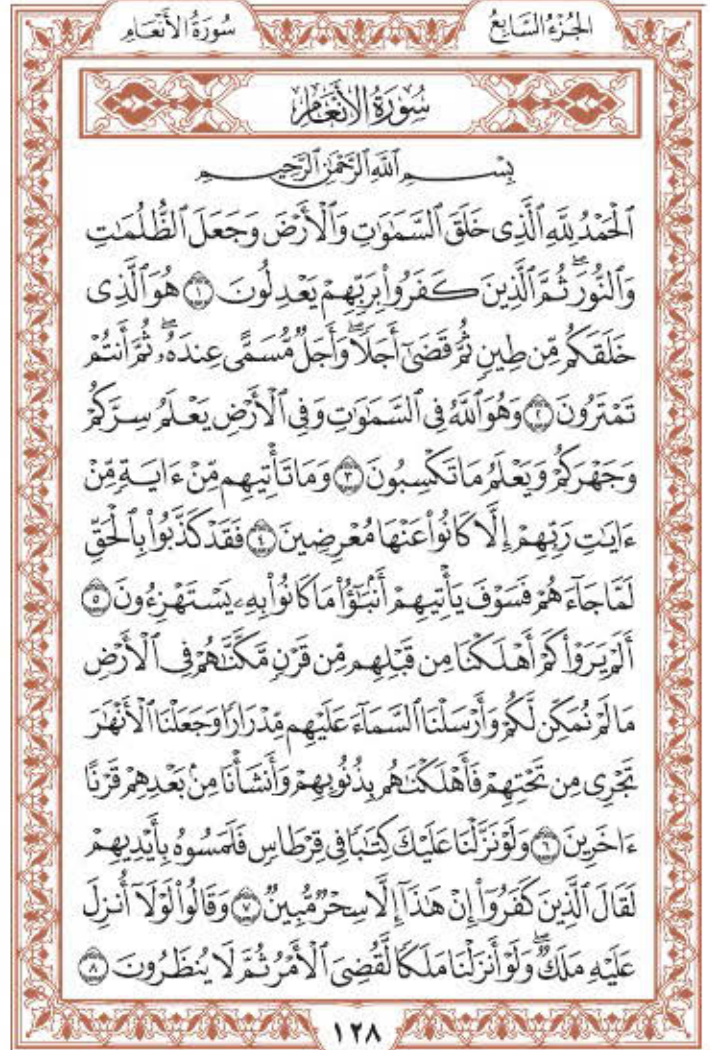 سُورَةُ الأَنْعَامِ الجُزْءُ السَّابِعُ
سُورَةُ الأَنْعَامِ
بِسْمِ ٱللَّهِ ٱلرَّحْمَٰنِ ٱلرَّحِيمِ
ٱلْحَمْدُ لِلَّهِ ٱلَّذِى خَلَقَ ٱلسَّمَٰوَٰتِ وَٱلْأَرْضَ وَجَعَلَ ٱلظُّلُمَٰتِ
وَٱلنُّورَۖ ثُمَّ ٱلَّذِينَ كَفَرُوا۟ بِرَبِّهِمْ يَعْدِلُونَ ١ هُوَ ٱلَّذِى
خَلَقَكُم مِّن طِينٍ ثُمَّ قَضَىٰٓ أَجَلًاۖ وَأَجَلٌ مُّسَمًّى عِندَهُۥۖ ثُمَّ أَنتُمْ
تَمْتَرُونَ ٢ وَهُوَ ٱللَّهُ فِى ٱلسَّمَٰوَٰتِ وَفِى ٱلْأَرْضِ يَعْلَمُ سِرَّكُمْ
وَجَهْرَكُمْ وَيَعْلَمُ مَا تَكْسِبُونَ ٣ وَمَا تَأْتِيهِم مِّنْ ءَايَةٍ مِّنْ
ءَايَٰتِ رَبِّهِمْ إِلَّا كَانُوا۟ عَنْهَا مُعْرِضِينَ ٤ فَقَدْ كَذَّبُوا۟ بِٱلْحَقِّ
لَمَّا جَآءَهُمْ فَسَوْفَ يَأْتِيهِمْ أَنۢبَٰٓؤُا۟ مَا كَانُوا۟ بِهِۦ يَسْتَهْزِءُونَ ٥
أَلَمْ يَرَوْا۟ كَمْ أَهْلَكْنَا مِن قَبْلِهِم مِّن قَرْنٍ مَّكَّنَّٰهُمْ فِى ٱلْأَرْضِ
مَا لَمْ نُمَكِّن لَّكُمْ وَأَرْسَلْنَا ٱلسَّمَآءَ عَلَيْهِم مِّدْرَارًا وَجَعَلْنَا ٱلْأَنْهَٰرَ
تَجْرِى مِن تَحْتِهِمْ فَأَهْلَكْنَٰهُم بِذُنُوبِهِمْ وَأَنشَأْنَا مِنۢ بَعْدِهِمْ قَرْنًا
ءَاخَرِينَ ٦ وَلَوْ نَزَّلْنَا عَلَيْكَ كِتَٰبًا فِى قِرْطَاسٍ فَلَمَسُوهُ بِأَيْدِيهِمْ
لَقَالَ ٱلَّذِينَ كَفَرُوٓا۟ إِنْ هَٰذَآ إِلَّا سِحْرٌ مُّبِينٌ ٧ وَقَالُوا۟ لَوْلَآ أُنزِلَ
عَلَيْهِ مَلَكٌۖ وَلَوْ أَنزَلْنَا مَلَكًا لَّقُضِىَ ٱلْأَمْرُ ثُمَّ لَا يُنظَرُونَ ٨
١٢٨